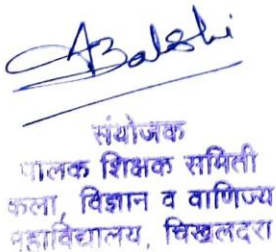 ABakshi
संयोजक
पालक शिक्षक समिती
कला, विज्ञान व वाणिज्य
महाविद्यालय, चिखलदरा